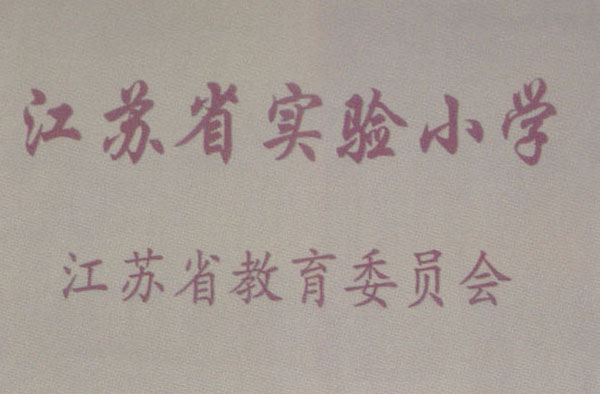 江苏省实验小学
江苏省教育委员会